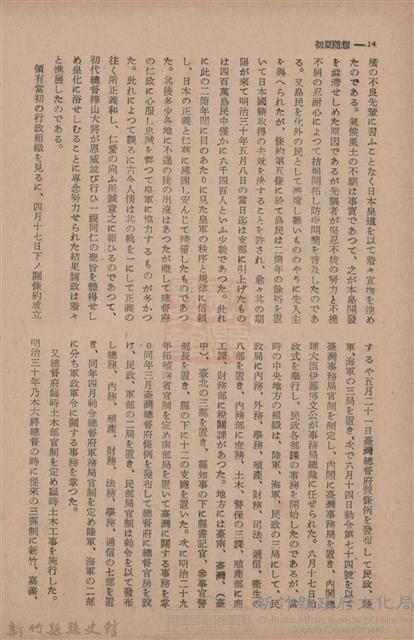 初夏隨想 — 14
橫の不良先輩に習ふことなく日本皇道を以て着々宣撫を進め
たのである。氣候風土の不順は事實であつて、之が本島開發
を澁滯せしめた原因であるが先驅者が堅忍不拔の努力と不撓
不屈の忍耐心によつて拮据開拓し防疫開墾を普及したのであ
る。又島民を化外の民として濟度し難いもののやうに先入主
を與へられたが、條約第五條に於て島民は二箇年の猶裕を置
いて日本國籍取得の去就を決することを許され、愈々其の期
限が來て明治三十年五月八日の當日迄は支那に引上げたもの
は四百萬島民中僅かに六千四百人といふ少數であつた。此れ
に此の二箇年間に目のあたりに見た皇軍の秩序と規律に信賴
し、日本の正義と仁政に感謝し安んじて殘留したものであつ
た。其後多少各地に不逞の徒の出沒はあつたが概して總督府
の仁政に心服し忠誠を誓つて皇軍に協力するものが多かつ
た。此れによつて觀るに古今人情は其の軌を一にして正義の
往く所正義和し、仁愛の向ふ所誠意之に報ひるのであつて、
初代總督樺山大將が恩威並び行ひ一視同仁の聖旨を體得せし
め皇化に浴せしむることに專念努力せられた結果諸政は着々
と進展したのである。
領有當初の行政組織を見るに、四月十七日下ノ關條約成立
するや五月二十一日臺灣總督府假條例を發布して民政、陸
軍、海軍の三局を置き、次で六月十四日勅令第七十四號を以て
臺灣事務局官制を制定し、內閣に臺灣事務局を置き、內閣總
理大臣伊藤博文公が事務局總裁に任ぜられた。六月十七日始
政式を舉行し、民政各部課の事務を開始したのであるが、當
時の中央地方の組織は、陸軍、海軍、民政の三局にして、民
政局に內務、外務、學務、殖產、財務、司法、遞信、衛生の
八部を置き、內務部に庶務、土木、警保の三課、殖產部に商
工課、財務部に稅關課があつた。地方には臺南、臺灣、（臺
中）、臺北の三縣を置き、縣知事の下に縣書記官、參事官警
部長を置き、縣の下に十二の支廳を置いた。次に明治二十九
年拓殖務省官制を定め南部局を置いて臺灣に關する事務を掌
り同年三月臺灣總督府條例を發布して總督府に總督官房を設
け、民政、軍部の二局を置き、民部局官制は勅令を以て發布
し總務、內務、殖產、財務、法務、學務、通信の七部を置
き、同年四月勅令總督府軍務局官制を定め陸軍、海軍の二部
に分ち軍政軍令に關する事務を掌つた。
又總督府臨時土木部官制を定め臨時土木工事を施行した。
明治三十年乃木大將總督の時に從來の三縣制に新竹、嘉義、
新竹縣縣史館
新竹縣政府文化局
Cultural Affairs Bureau of Hsinchu
County Government